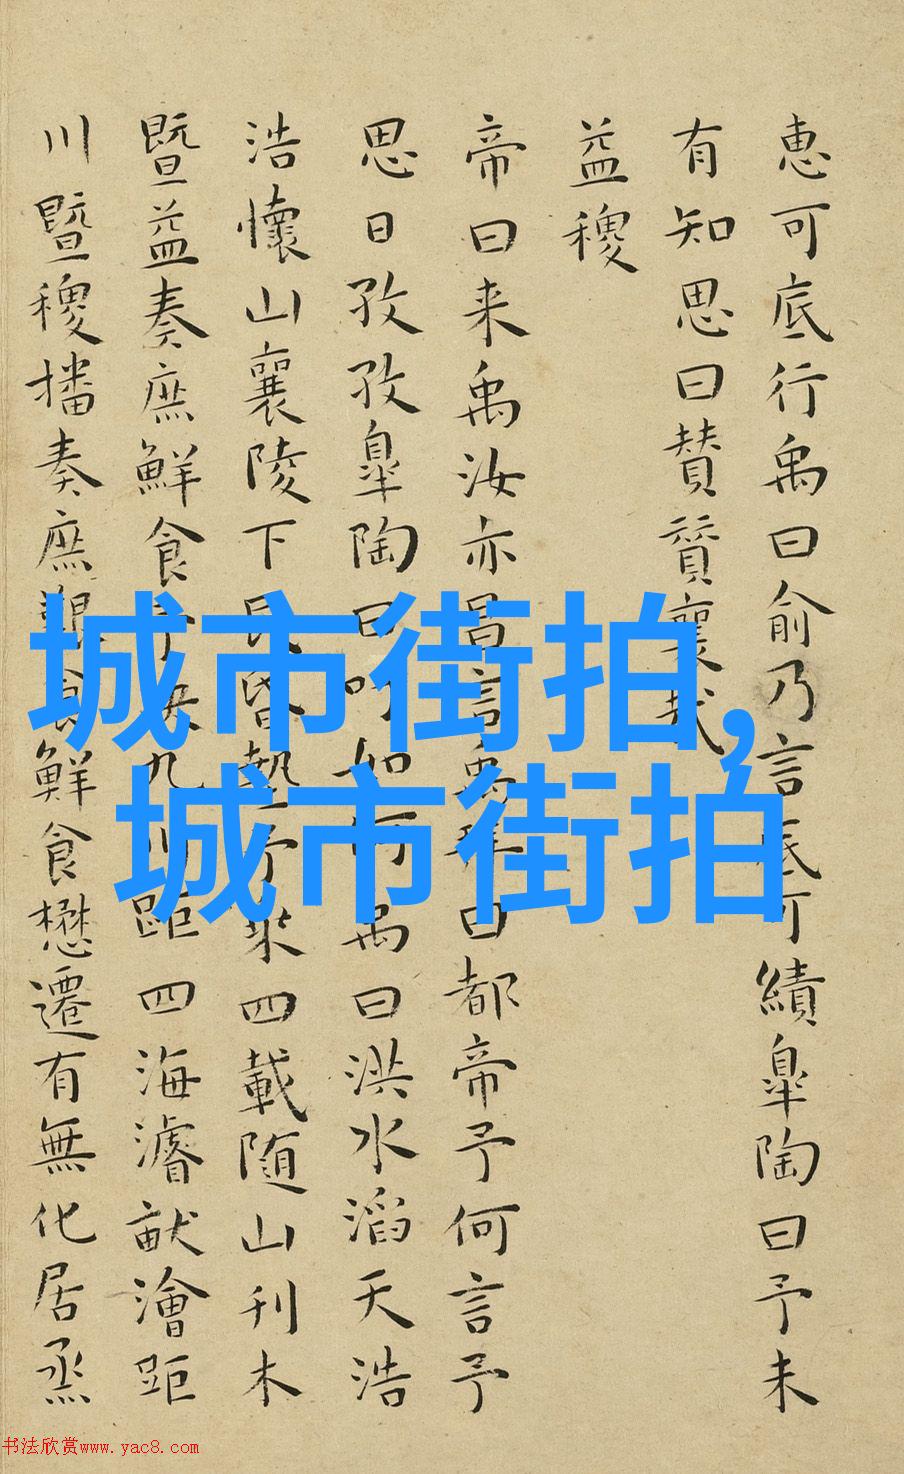 惠可底行禹曰俞乃言底可績皐陶曰予未
有知思曰賛賛襄哉
益稷
帝曰来禹汝亦昌言禹拜曰都帝予何言予
思日孜孜皐陶曰吁如何禹曰洪水滔天浩
浩懷山襄陵下民昏墊予乘四載随山刊木
暨益奏庶鮮食予決九川距四海濬畎澮距
川暨稷播奏庶艱食鮮食懋遷有無化居烝
城市街拍,
城市街拍
书法欣赏www.yac8.com